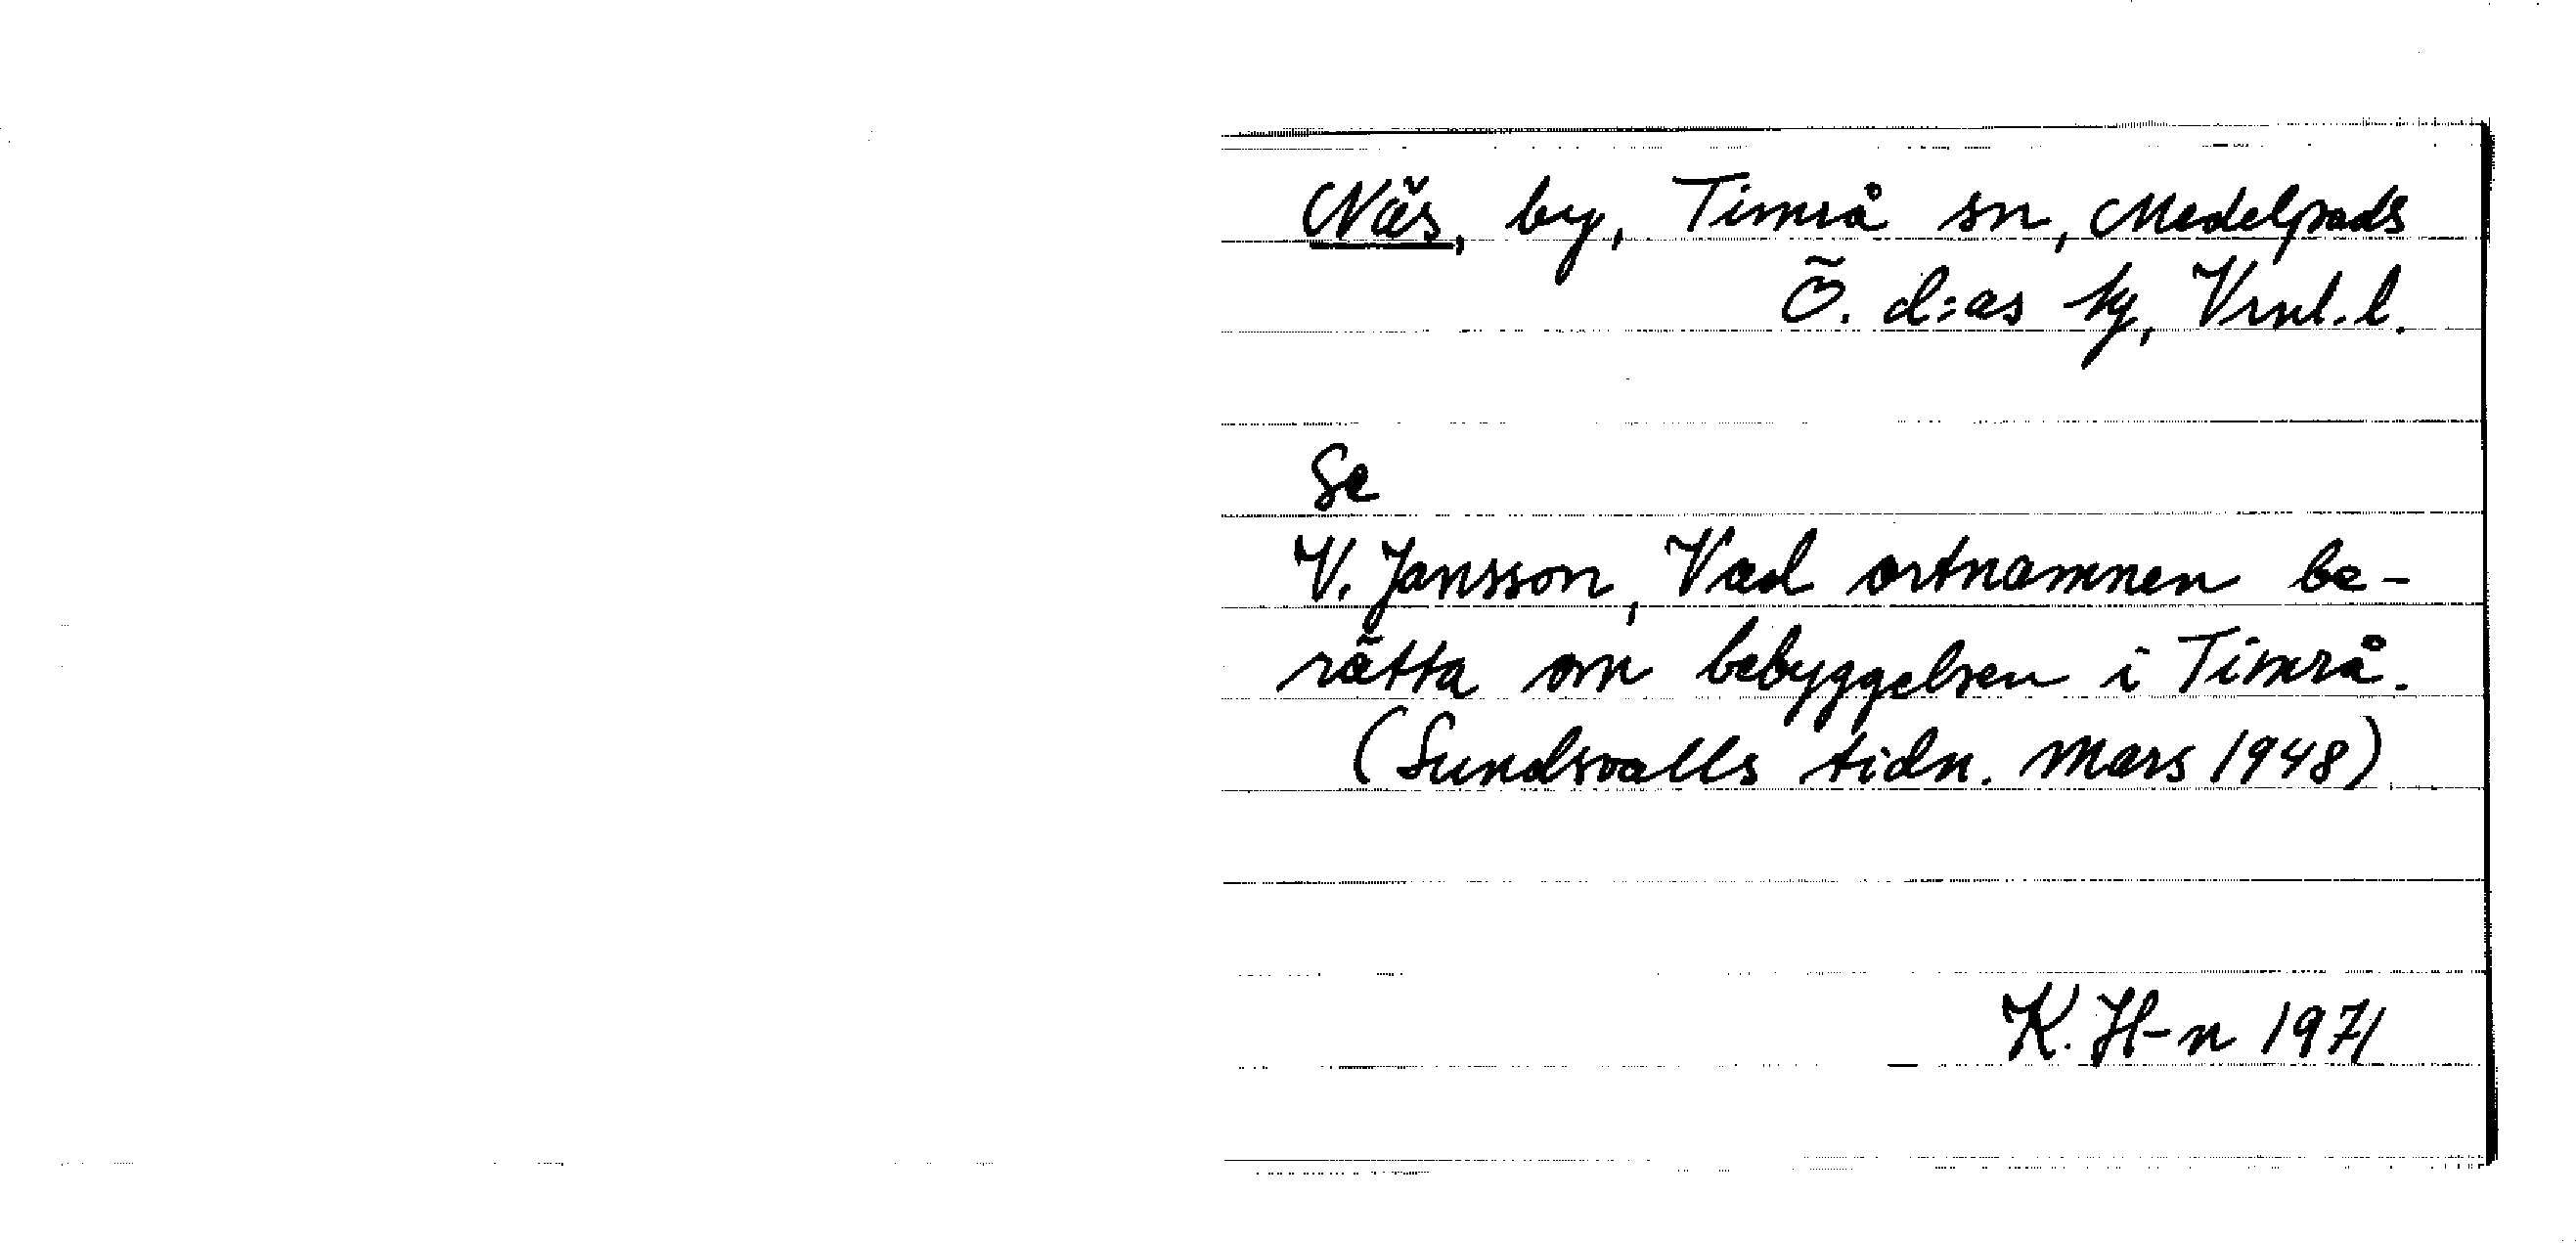 Näs, by, Timrå sn, Medelpads
Ö. d:as tg, Vrnl. l.
Se
V. Jansson, Vad ortnamnen be-
rätta om bebyggelsen i Timrå.
(Sundsvalls tidn. Mars 1948)
K. H-n 1971